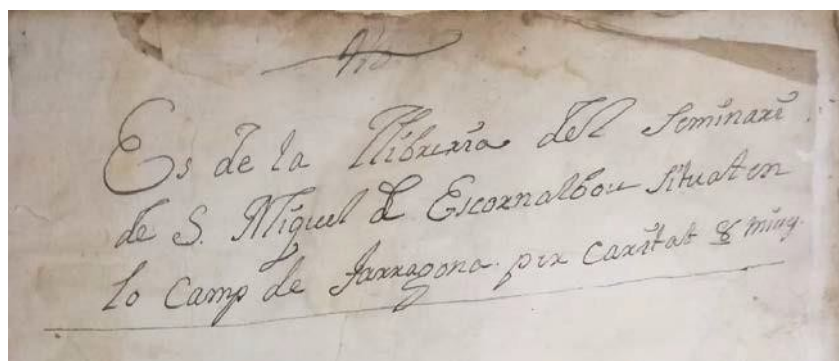 Es de la Llibreria del Seminari
de S. Miquel de Escornalbou situat en
lo Camp de Tarragona per Caritat &